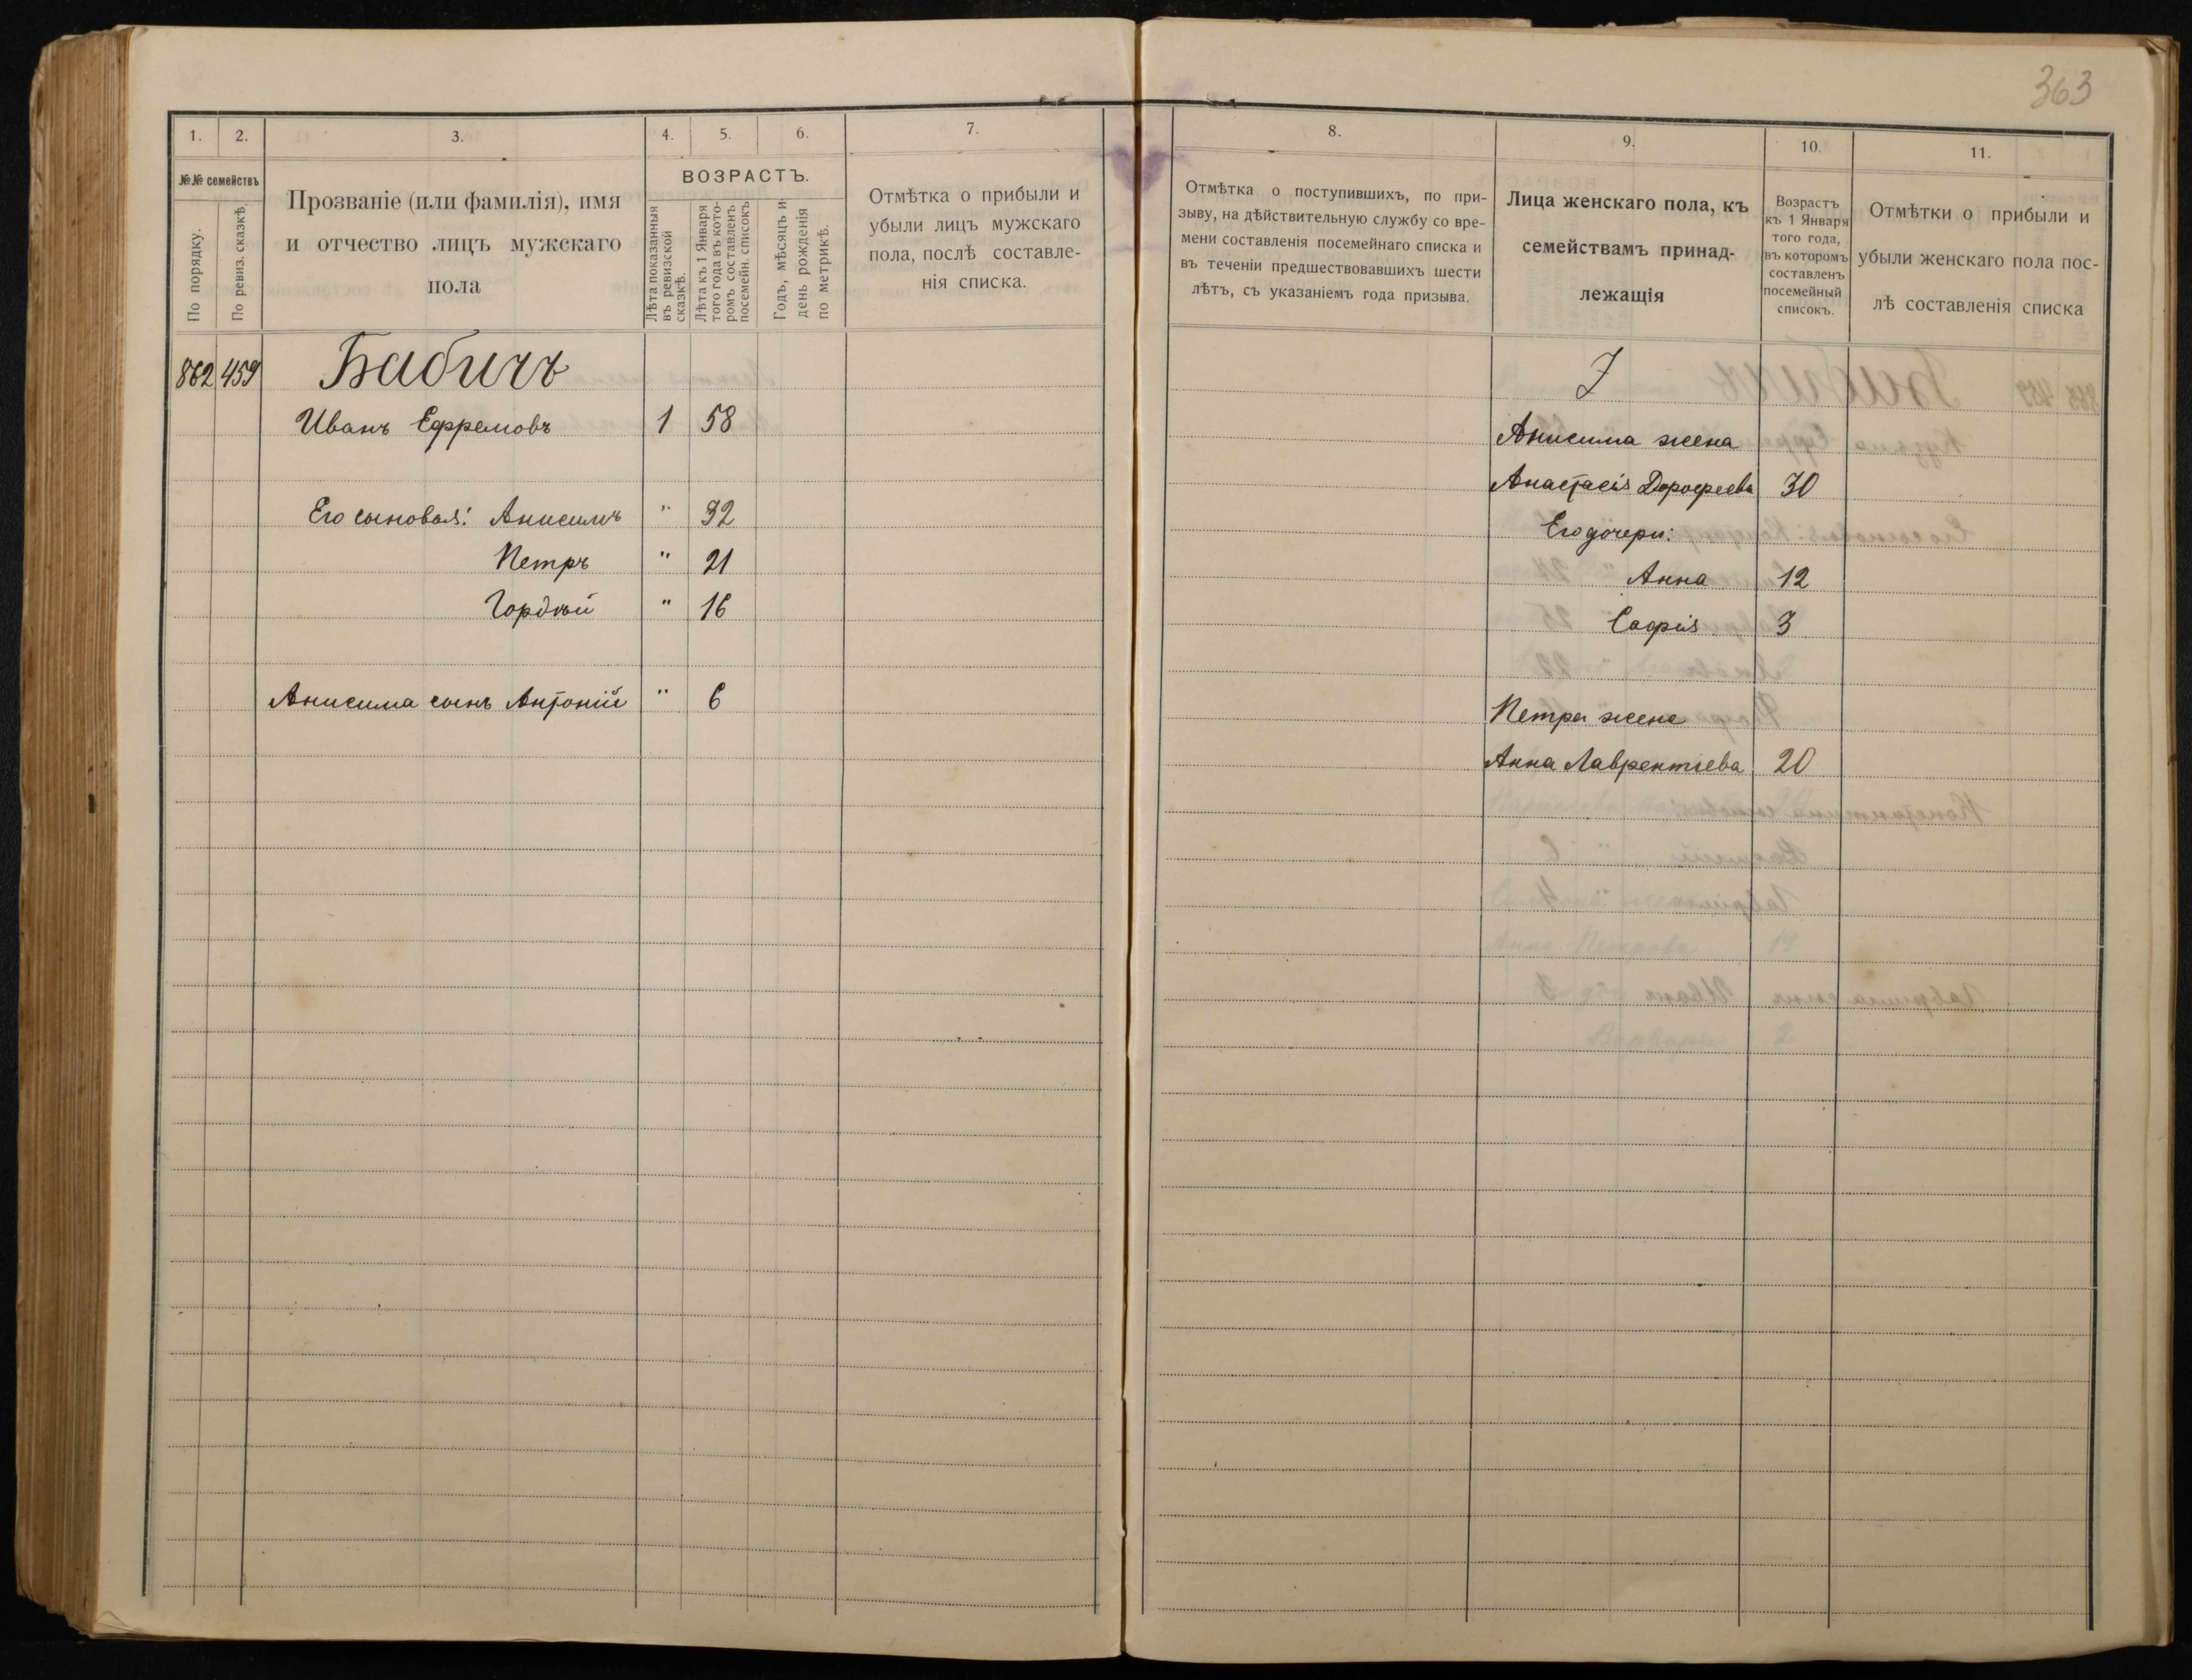 363
1. 2. 3. 4. 5. 6. 7.
№№ семействъ
По порядку.
По ревиз. сказкѣ.
Прозваніе (или фамилія), имя
и отчество лицъ мужскаго
пола
ВОЗРАСТЪ.
Лѣта показанныя
въ ревизской
сказкѣ.
Лѣта къ 1 Января
того года въ кото-
ромъ составленъ
посемейн. списокъ
Годъ, мѣсяцъ и
день рожденія
по метрикѣ.
Отмѣтка о прибыли и
убыли лицъ мужскаго
пола, послѣ составле-
нія списка.
862 459 Бабичъ
Иванъ Ефремовъ 1 58
Его сыновья: Анисимъ " 32
Петръ " 21
Гордѣй " 16
Анисима сынъ Антоній " 6
8. 9. 10. 11.
Отмѣтка о поступившихъ, по при-
зыву, на дѣйствительную службу со вре-
мени составленія посемейнаго списка и
въ теченіи предшествовавшихъ шести
лѣтъ, съ указаніемъ года призыва.
Лица женскаго пола, къ
семействамъ принад-
лежащія
Возрастъ
къ 1 Января
того года,
въ которомъ
составленъ
посемейный
списокъ.
Отмѣтки о прибыли и
убыли женскаго пола пос-
лѣ составленія списка
Анисима жена
Анастасія Дорофеева 30
Его дочери:
Анна 12
Софія 3
Петра жена
Анна Лаврентіева 20